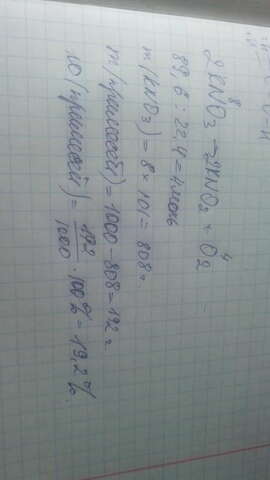 8 4
2KNO3 → 2KNO2 + O2
89,6 : 22,4 = 4 моль
m(KNO3) = 8 * 101 = 808 г
m(примесей) = 1000 - 808 = 192 г
ω(примесей) = 192/1000 · 100% = 19,2%.